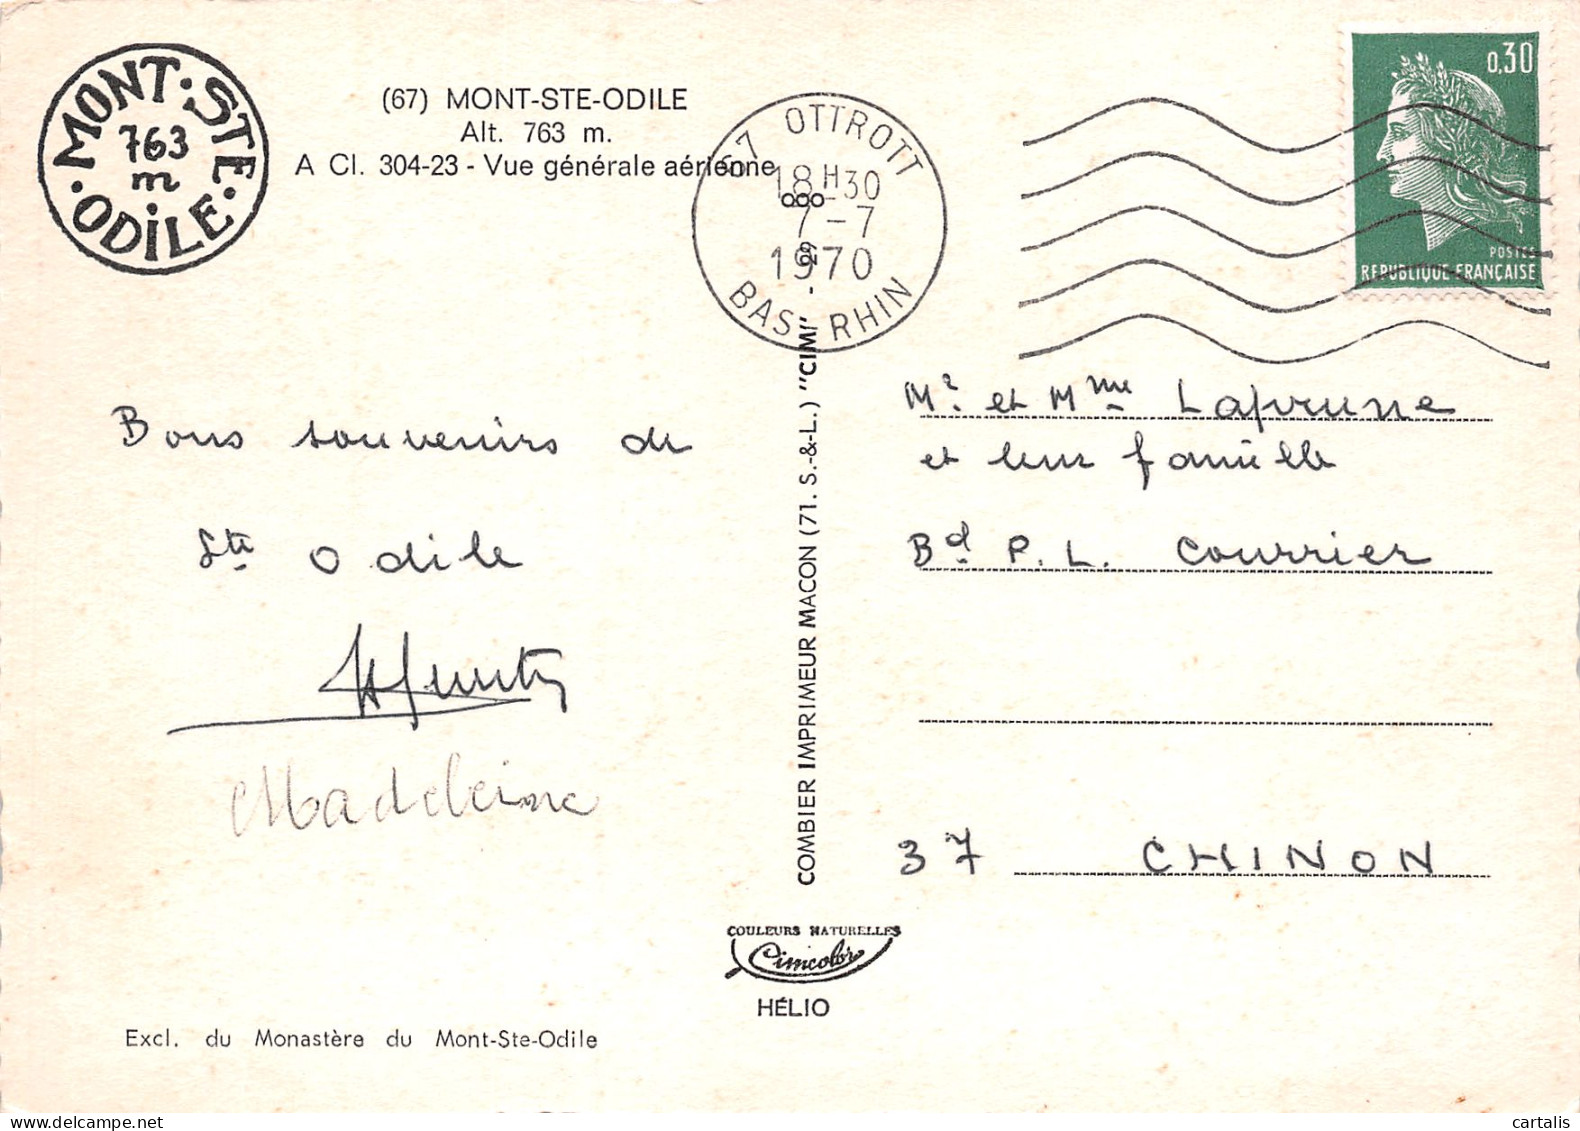 MONT-STE-ODILE
763
m
(67) MONT-STE-ODILE
Alt. 763 m.
A Cl. 304-23 - Vue générale aérienne
67 OTTROTT
18H30
7-7
1970
BAS RHIN
0,30
POSTES
REPUBLIQUE-FRANÇAISE
Bons souvenirs de
Ste Odile
Madeleine
COMBIER IMPRIMEUR MACON (71. S.-&-L.) "CIMI" - 69
Mr. et Mme Laprune
et leur famille
Bd P. L. Courrier
37 CHINON
COULEURS NATURELLES
Cimcolor
HÉLIO
Excl. du Monastère du Mont-Ste-Odile
cartalis